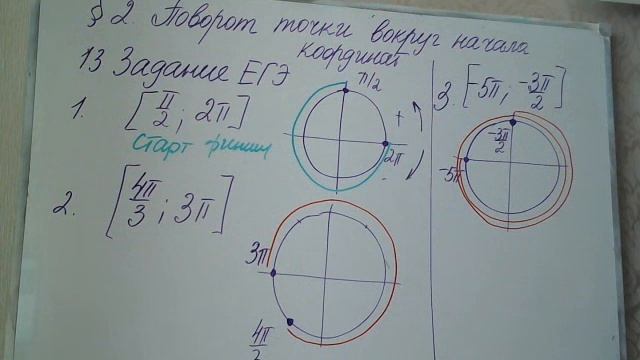 § 2. Поворот точки вокруг начала
координат
13 Задание ЕГЭ
1. [π/2; 2π]
Старт финиш
π/2
+
2π
-
2. [4π/3; 3π]
3π
4π/3
3. [-5π; -3π/2]
-3π/2
-5π